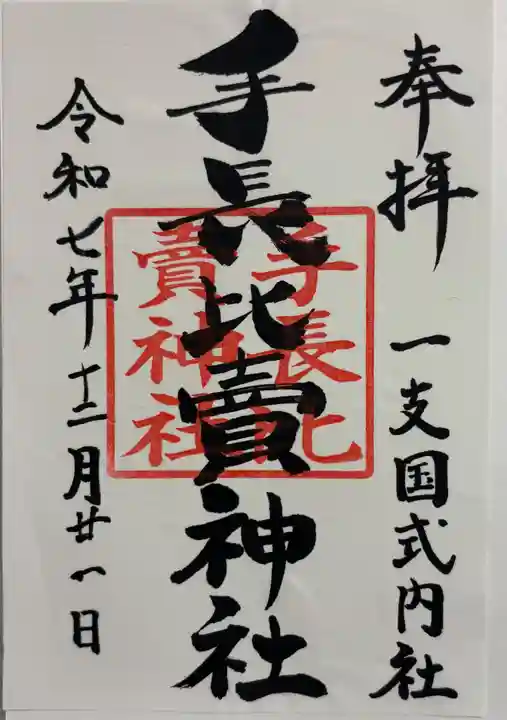 奉拝
一支国式内社
手長比賣神社
手長比
賣神社
令和七年十二月廿一日